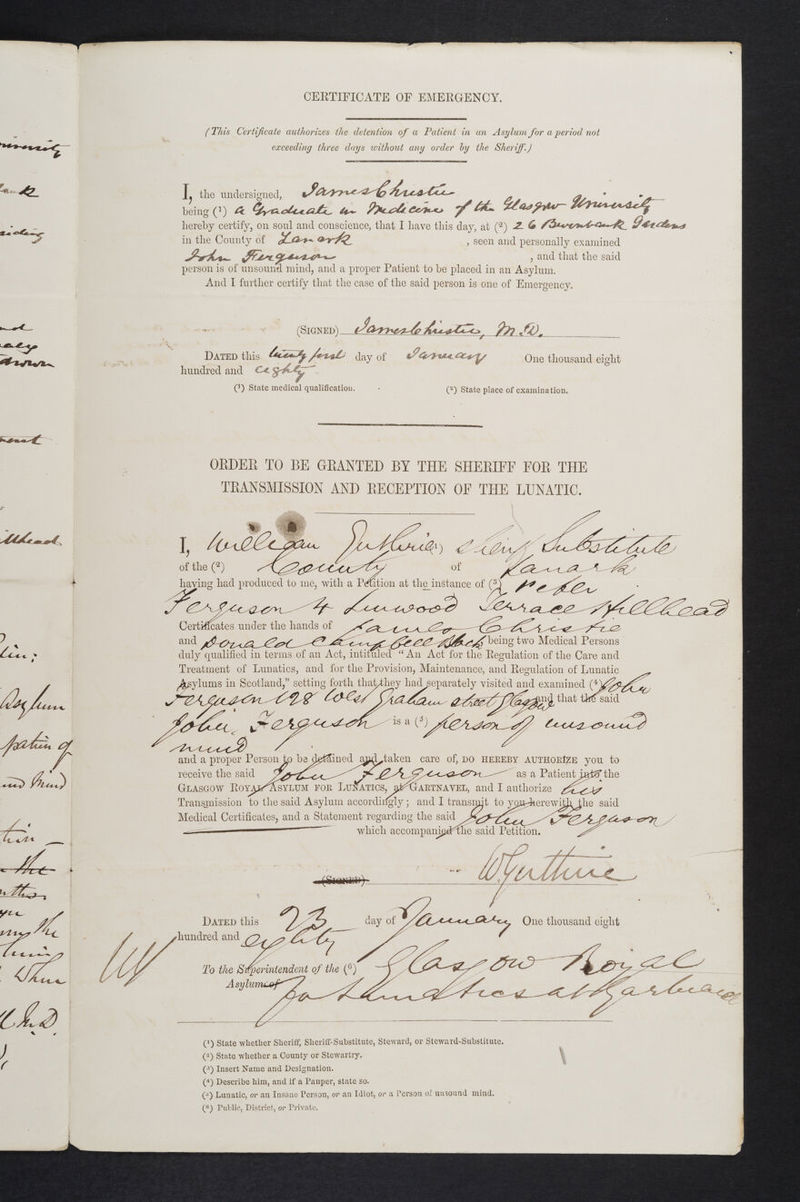 CERTIFICATE OF EMERGENCY.
(This Certificate authorizes the detention of a Patient in an Asylum for a period not
exceeding three days without any order by the Sheriff.)
I, the undersigned, James Christie
being (1) a Graduate in Medicine of the Glasgow University
hereby certify, on soul and conscience, that I have this day, at (2) 26 Gardens
in the County of Lanark , seen and personally examined
John Ferguson , and that the said
person is of unsound mind, and a proper Patient to be placed in an Asylum.
And I further certify that the case of the said person is one of Emergency.
(SIGNED) James Christie, M.D.
DATED this twenty first day of January One thousand eight
hundred and eighty
(1) State medical qualification. (2) State place of examination.
ORDER TO BE GRANTED BY THE SHERIFF FOR THE
TRANSMISSION AND RECEPTION OF THE LUNATIC.
I, William Guthrie (1) Sheriff Substitute
of the (2) County of Lanark
having had produced to me, with a Petition at the instance of (3) Peter
Ferguson 4 Linwood Terrace Hillhead
Certificates under the hands of James Christie
and Donald Campbell Black being two Medical Persons
duly qualified in terms of an Act, intituled "An Act for the Regulation of the Care and
Treatment of Lunatics, and for the Provision, Maintenance, and Regulation of Lunatic
Asylums in Scotland," setting forth that they had separately visited and examined (4) John
Ferguson 198 West Graham Street Glasgow and that the said
John Ferguson is a (5) person of unsound
mind
and a proper Person to be detained and taken care of, DO HEREBY AUTHORIZE you to
receive the said John Ferguson as a Patient into the
GLASGOW ROYAL ASYLUM FOR LUNATICS, at GARTNAVEL, and I authorize his
Transmission to the said Asylum accordingly; and I transmit to you herewith the said
Medical Certificates, and a Statement regarding the said John Ferguson
which accompanied the said Petition.
(SIGNED) W Guthrie
DATED this 23 day of January One thousand eight
hundred and eighty
To the Superintendent of the (6) Glasgow Royal
Asylum of for Lunatics at Gartnavel
(1) State whether Sheriff, Sheriff-Substitute, Steward, or Steward-Substitute.
(2) State whether a County or Stewartry.
(3) Insert Name and Designation.
(4) Describe him, and if a Pauper, state so.
(5) Lunatic, or an Insane Person, or an Idiot, or a Person of unsound mind.
(6) Public, District, or Private.